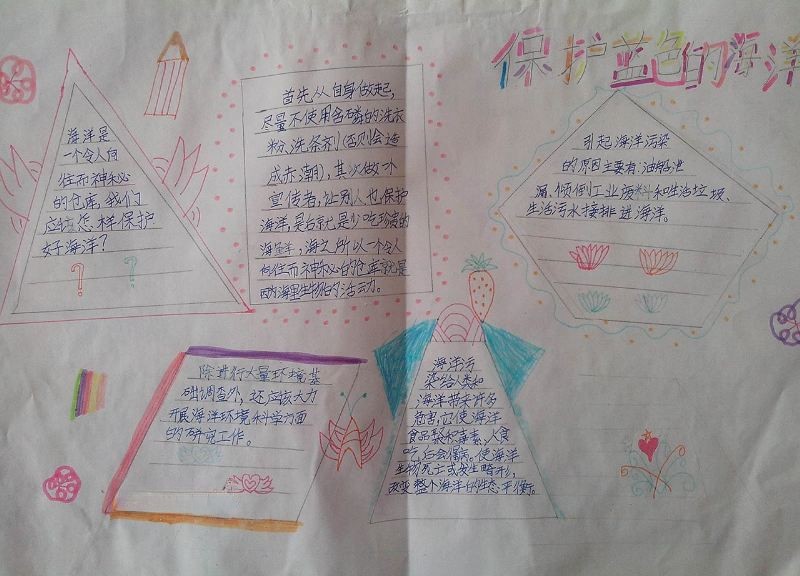 保护蓝色的海洋
海洋是
一个令人向
往而神秘
的仓库,我们
应该怎样保护
好海洋?
首先从自身做起,
尽量不使用含磷的洗衣
粉、洗条剂(否则会造
成赤潮),其次做一个
宣传者,让别人也保护
海洋,最后就是少吃珍贵的
海洋,海之所以一个令人
向往而神秘的仓库就是
因为海里生物的活动。
引起海洋污染
的原因主要有:油船泄
漏、倾倒工业废料和生活垃圾、
生活污水接排进海洋。
除进行大量环境基
础调查外,还应该大力
开展海洋环境科学方面
的研究工作。
海洋污
染给人类和
海洋带来许多
危害,它使海洋
食品聚积毒素,人食
吃后会得病。使海洋
生物死亡或发生畸形,
改变整个海洋的生态平衡。